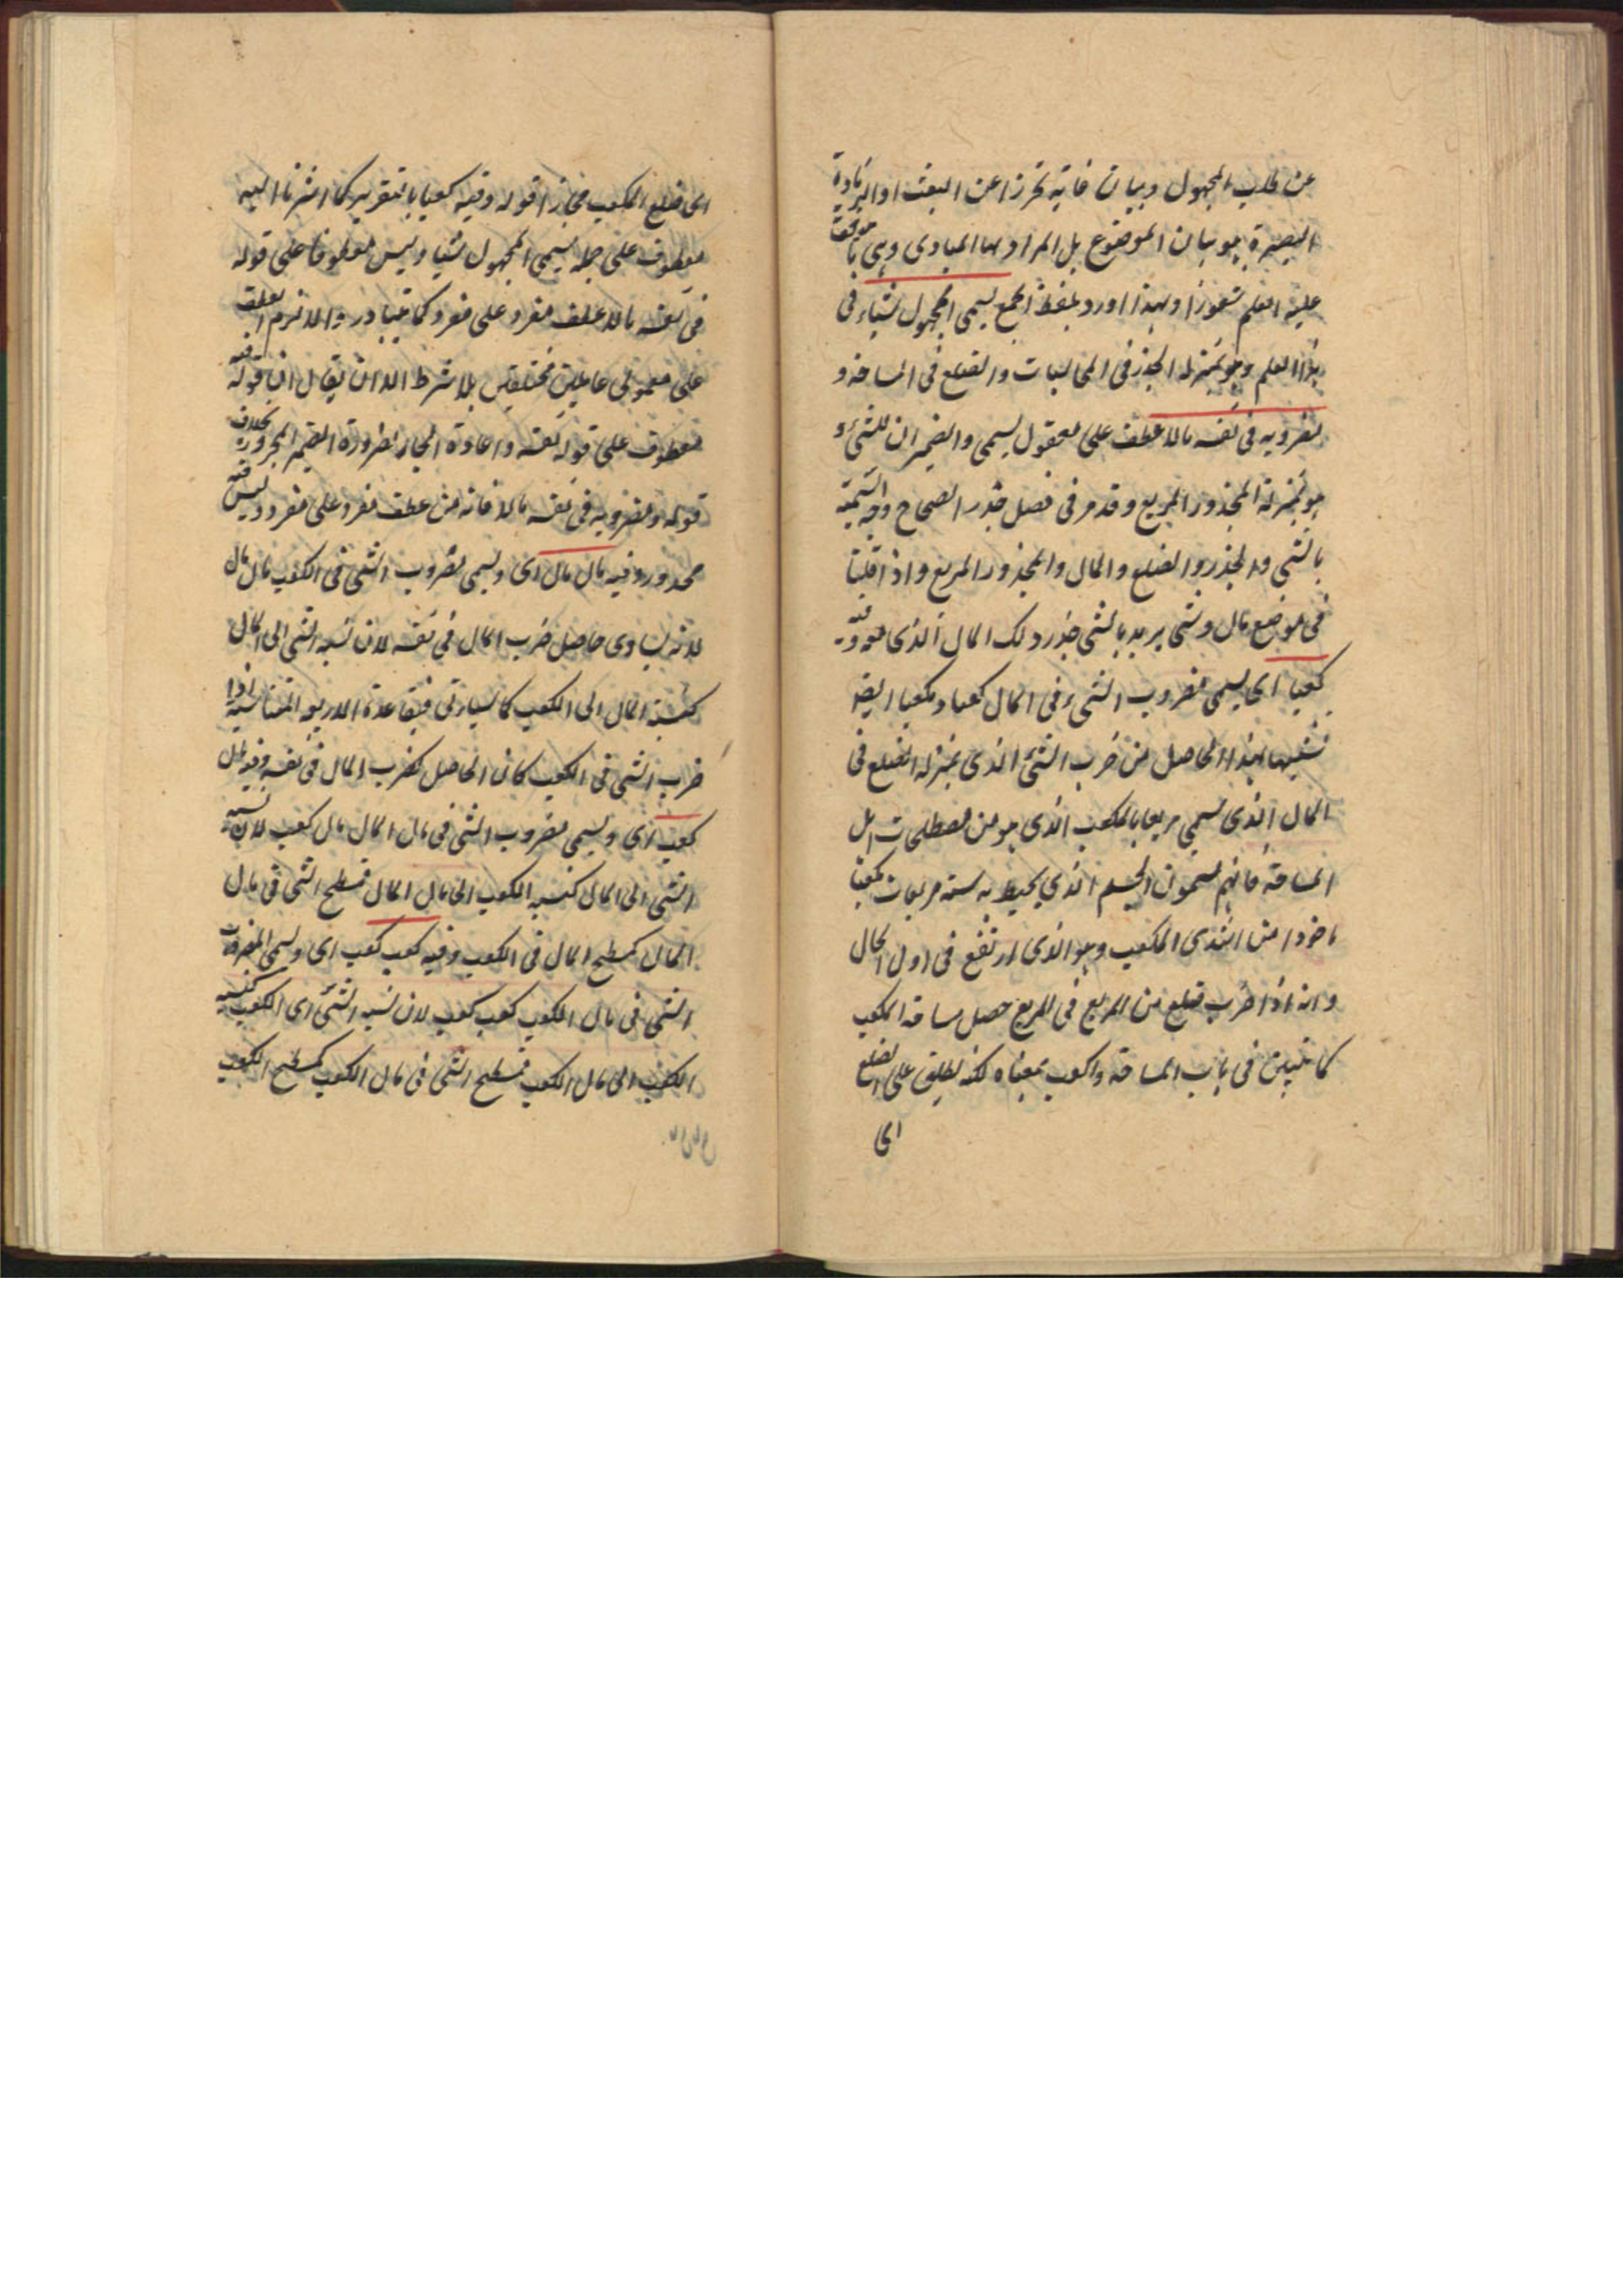 عن طلب المجهول وبيان غايته تحرزا عن العبث او الزيادة
البصيرة هو بيان الموضوع بل المراد بها المبادى وهى ما يتوقف
عليه العلم شعورا ولهذا اورد بلفظ الجمع يسمى المجهول شيئا فى
هذا العلم وهو بمنزلة الجذر فى المحاسبات والضلع فى المساحة و
مضروبه فى نفسه مالا عطف على معمول يسمى والضميران للشئ و
هو بمنزلة المجذور المربع وقد مر فى فصل جذر الصحاح وجه التسمية
بالشى والجذر والضلع والمال والمجذور المربع واذا قلنا
فى موضع مال وشى يريد بالشى جذر ذلك المال الذى معه وفيه
كعبا اى يسمى مضروب الشئ فى المال كعبا ومكعبا ايضا
تشبيها لهذا الحاصل من ضرب الشئ الذى بمنزلة الضلع فى
المال الذى يسمى مربعا بالمكعب الذى هو من مصطلحات اهل
المساحة فانهم يسمون الجسم الذى يحيط به ستة مربعات مكعبا
ماخوذا من الثدى المكعب وهو الذى ارتفع فى اول الحال
وانه اذا ضرب ضلع من المربع فى المربع حصل مساحة المكعب
كما تبين فى باب المساحة والكعب بمعناه لكنه يطلق على الضلع
اى
اى ضلع المكعب مجازا قوله وفيه كعبا بالتقرير كما اشرنا اليه
معطوف على جملة يسمى المجهول شيئا وليس معطوفا على قوله
فى نفسه مالا عطف مفرد على مفرد كما يتبادر والا لزم العطف
على معمولى عاملين مختلفين بلا شرط الا ان يقال ان قوله فيه
معطوف على قوله نفسه واعادة الجار لضرورة الضمير المجرور بخلاف
قوله ومضروبه فى نفسه مالا فانه من عطف مفرد على مفرد وليس فيه
محذور وفيه مال مال اى ويسمى مضروب الشئ فى الكعب مال مال
لانه يساوى حاصل ضرب المال فى نفسه لان نسبة الشى الى المال
كنسبة المال الى الكعب كما سياتى فبقاعدة الاربعة المتناسبة اذا
ضرب الشى فى الكعب كان الحاصل كضرب المال فى نفسه وفيه مال
كعب اى ويسمى مضروب الشى فى مال المال مال كعب لان نسبة
الشى الى المال كنسبة الكعب الى مال المال فمسطح الشى فى مال
المال كمسطح المال فى الكعب وفيه كعب كعب اى ويسمى المضروب
الشى فى مال الكعب كعب كعب لان نسبة الشئ اى الكعب كنسبة
الكعب الى مال الكعب فمسطح الشى فى مال الكعب كمسطح الكعب